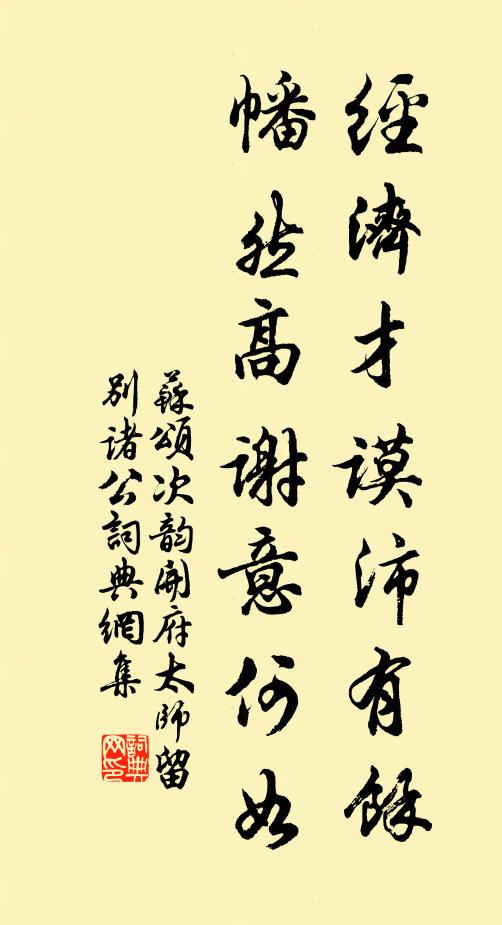 經濟才謨沛有餘
幡然高謝意何如
蘇頌次韵開府太師留
別諸公詞典網集
詞典
网印